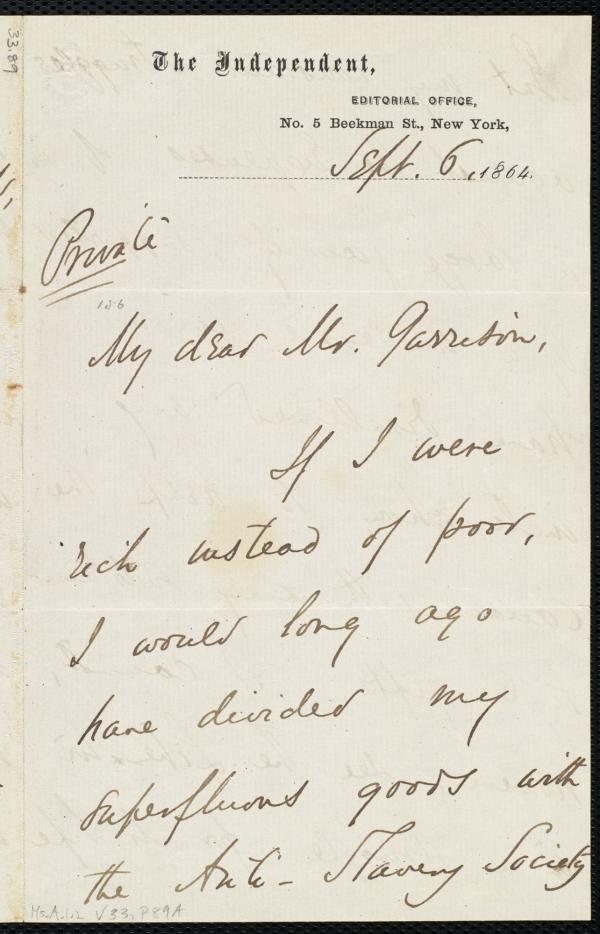 33.89
The Independent,
EDITORIAL OFFICE,
No. 5 Beekman St., New York,
Sept. 6, 1864.
Private
156
My dear Mr. Garrison,
If I were
rich instead of poor,
I would long ago
have divided my
superfluous goods with
the Anti-Slavery Society
Ms.A.1.2 V33, P89A